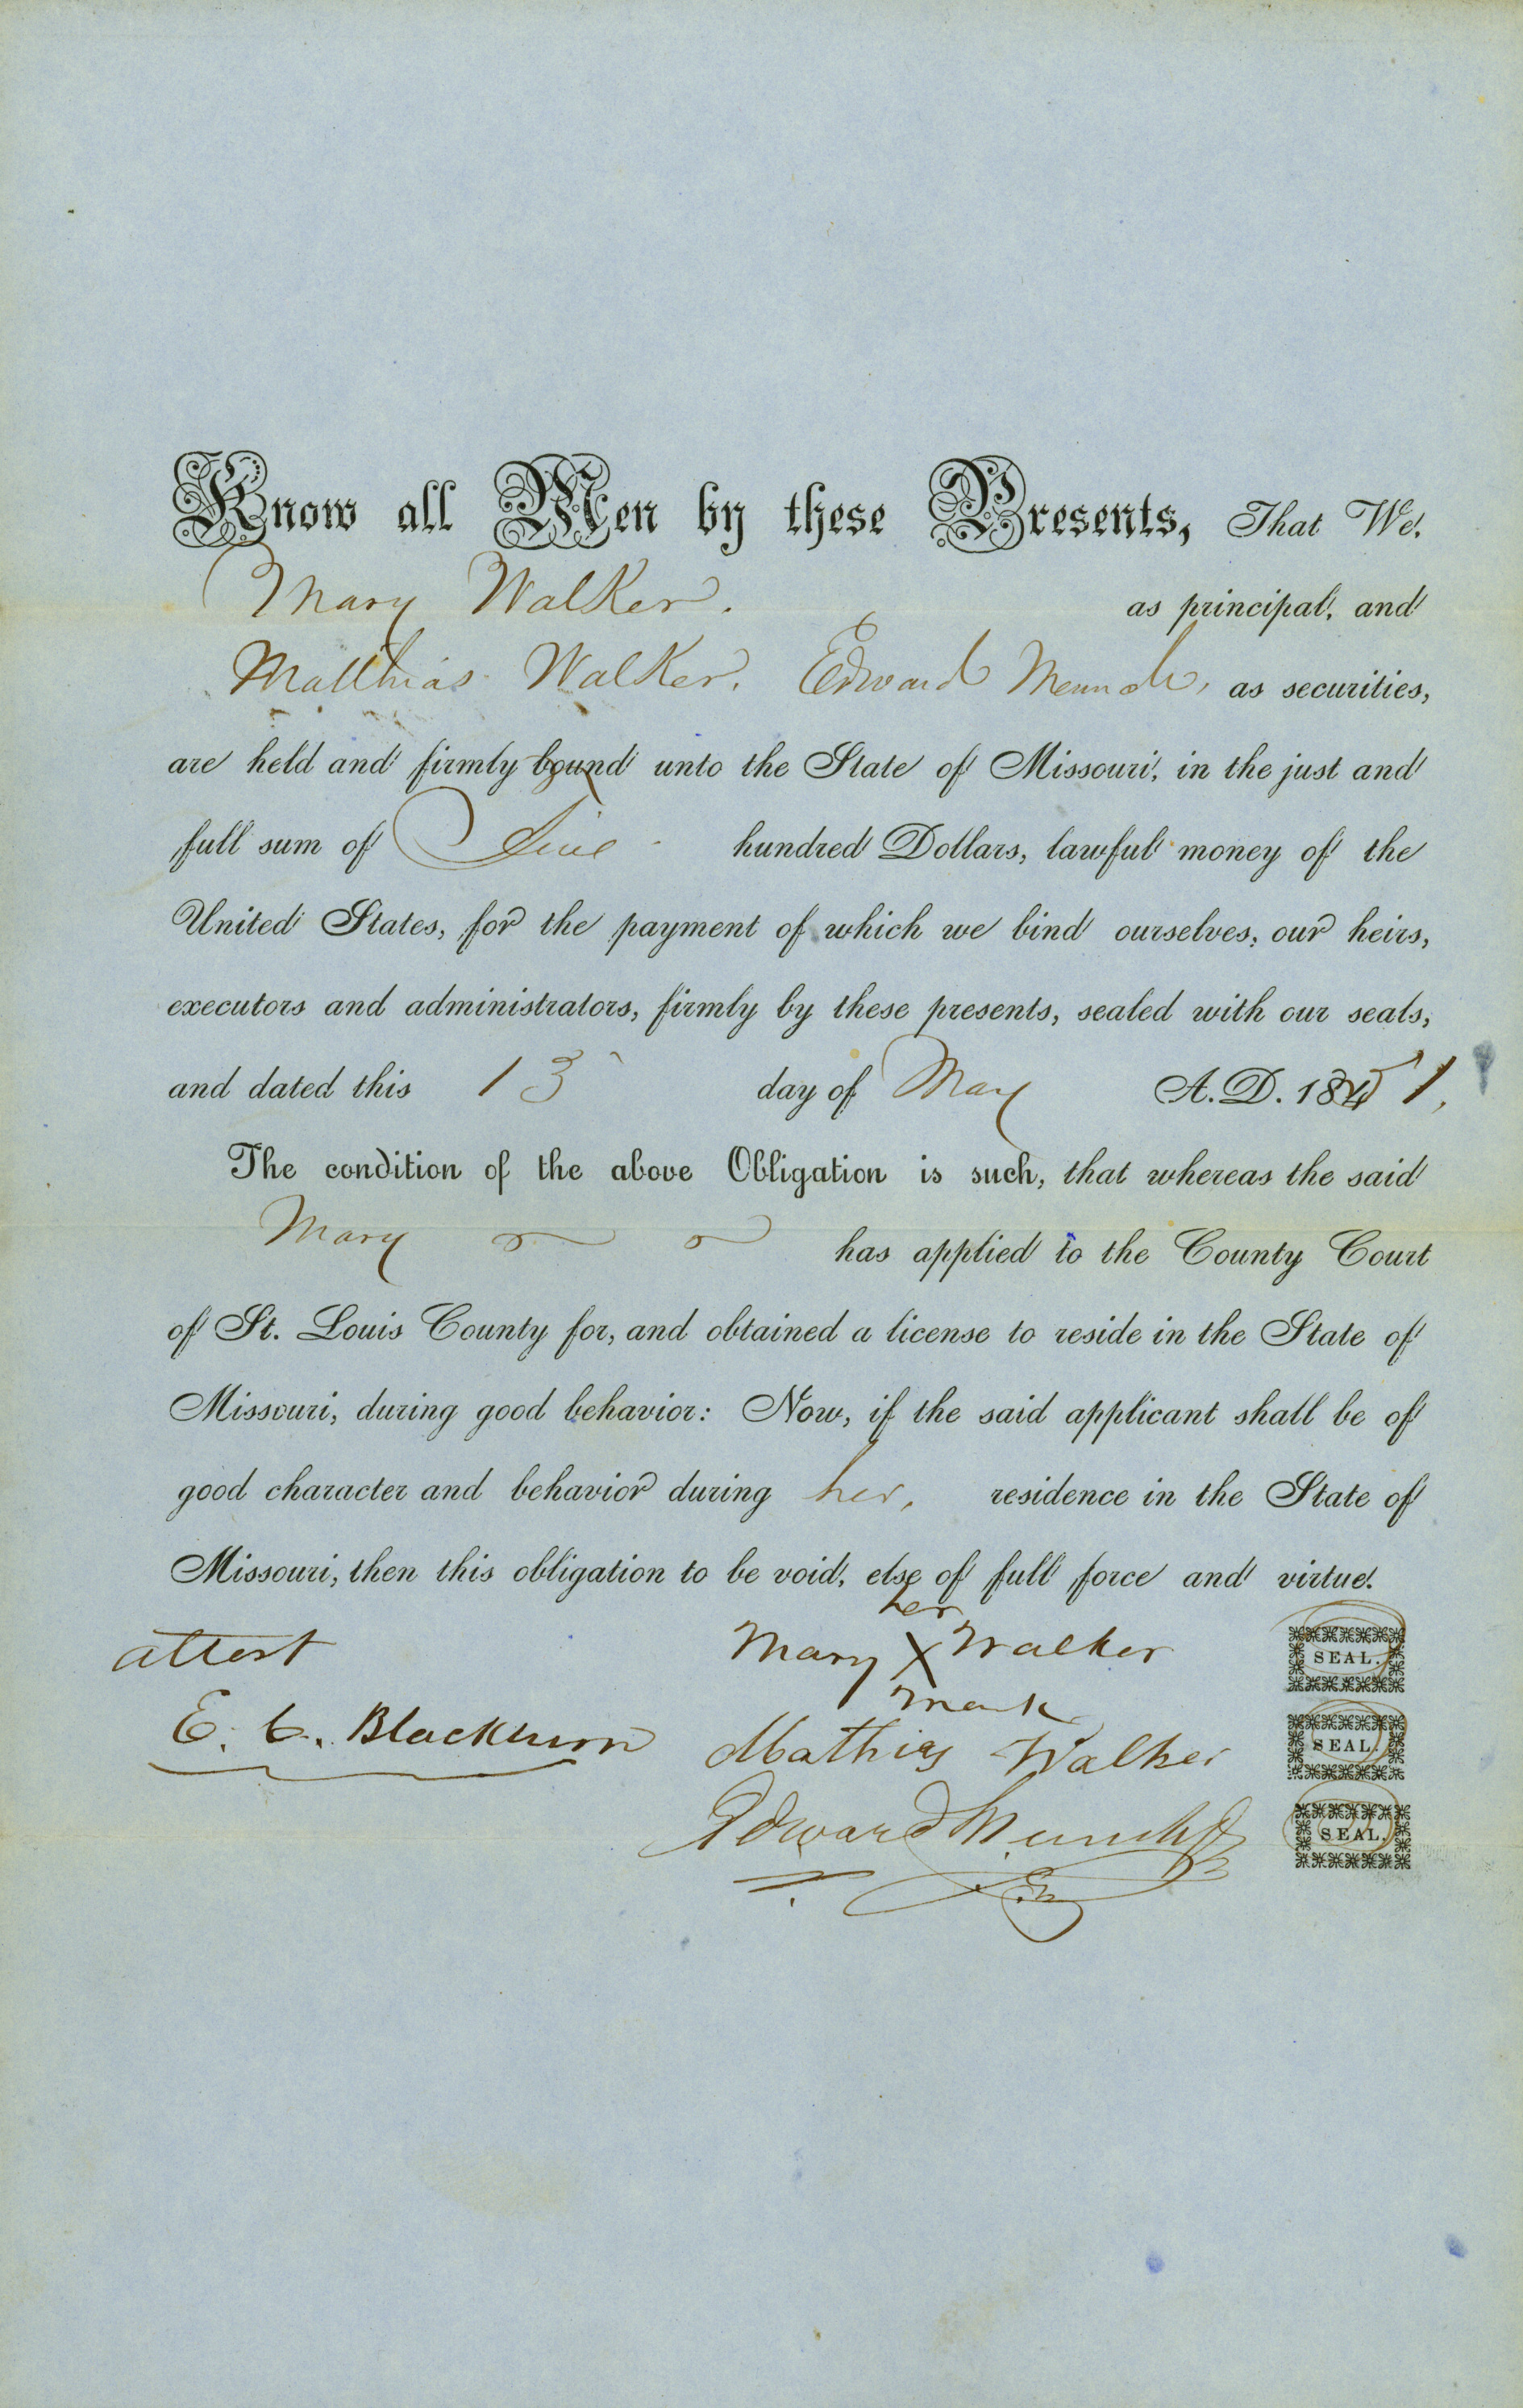 Know all Men by these Presents, That We,
Mary Walker. as principal, and
Matthias Walker. Edward as securities,
are held and firmly bound unto the State of Missouri, in the just and
full sum of five hundred Dollars, lawful money of the
United States, for the payment of which we bind ourselves, our heirs,
executors and administrators, firmly by these presents, sealed with our seals,
and dated this 13 day of May A.D. 1851.
The condition of the above Obligation is such, that whereas the said
Mary has applied to the County Court
of St. Louis County for, and obtained a license to reside in the State of
Missouri, during good behavior: Now, if the said applicant shall be of
good character and behavior during her, residence in the State of
Missouri, then this obligation to be void, else of full force and virtue.
her
attest Mary X Walker SEAL.
mark
E. C. Blackburn Mathias Walker SEAL.
Edward Münch SEAL.